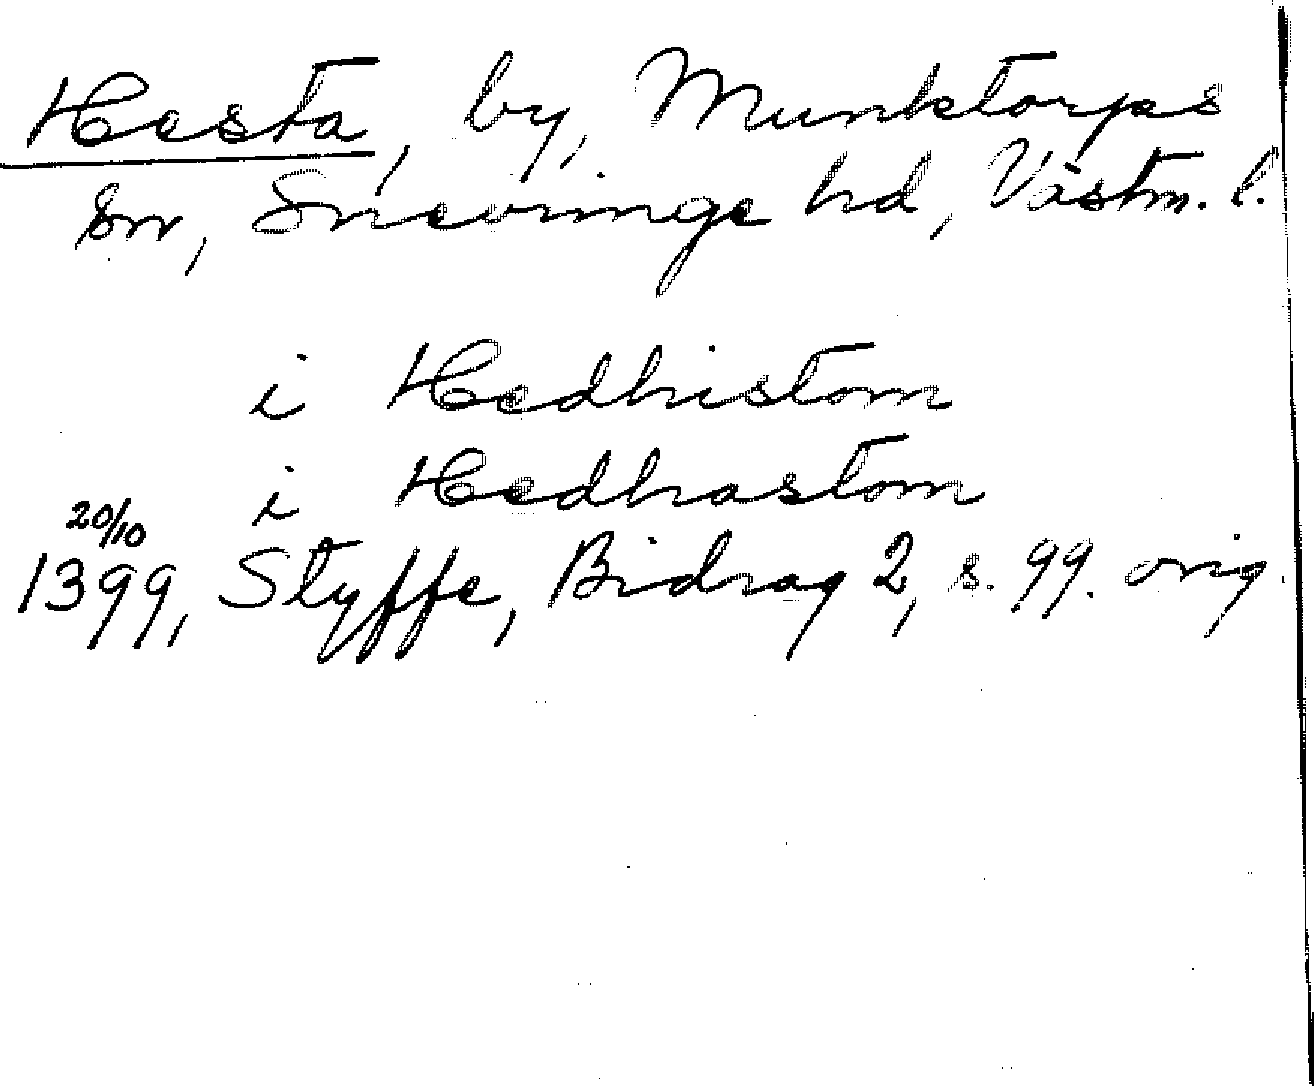 Hesta, by, Munktorps
sn, Snevringe hd, Västm. l.
i Hedhistom
i Hedhastom
20/10
1399, Styffe, Bidrag 2, s. 99. orig.